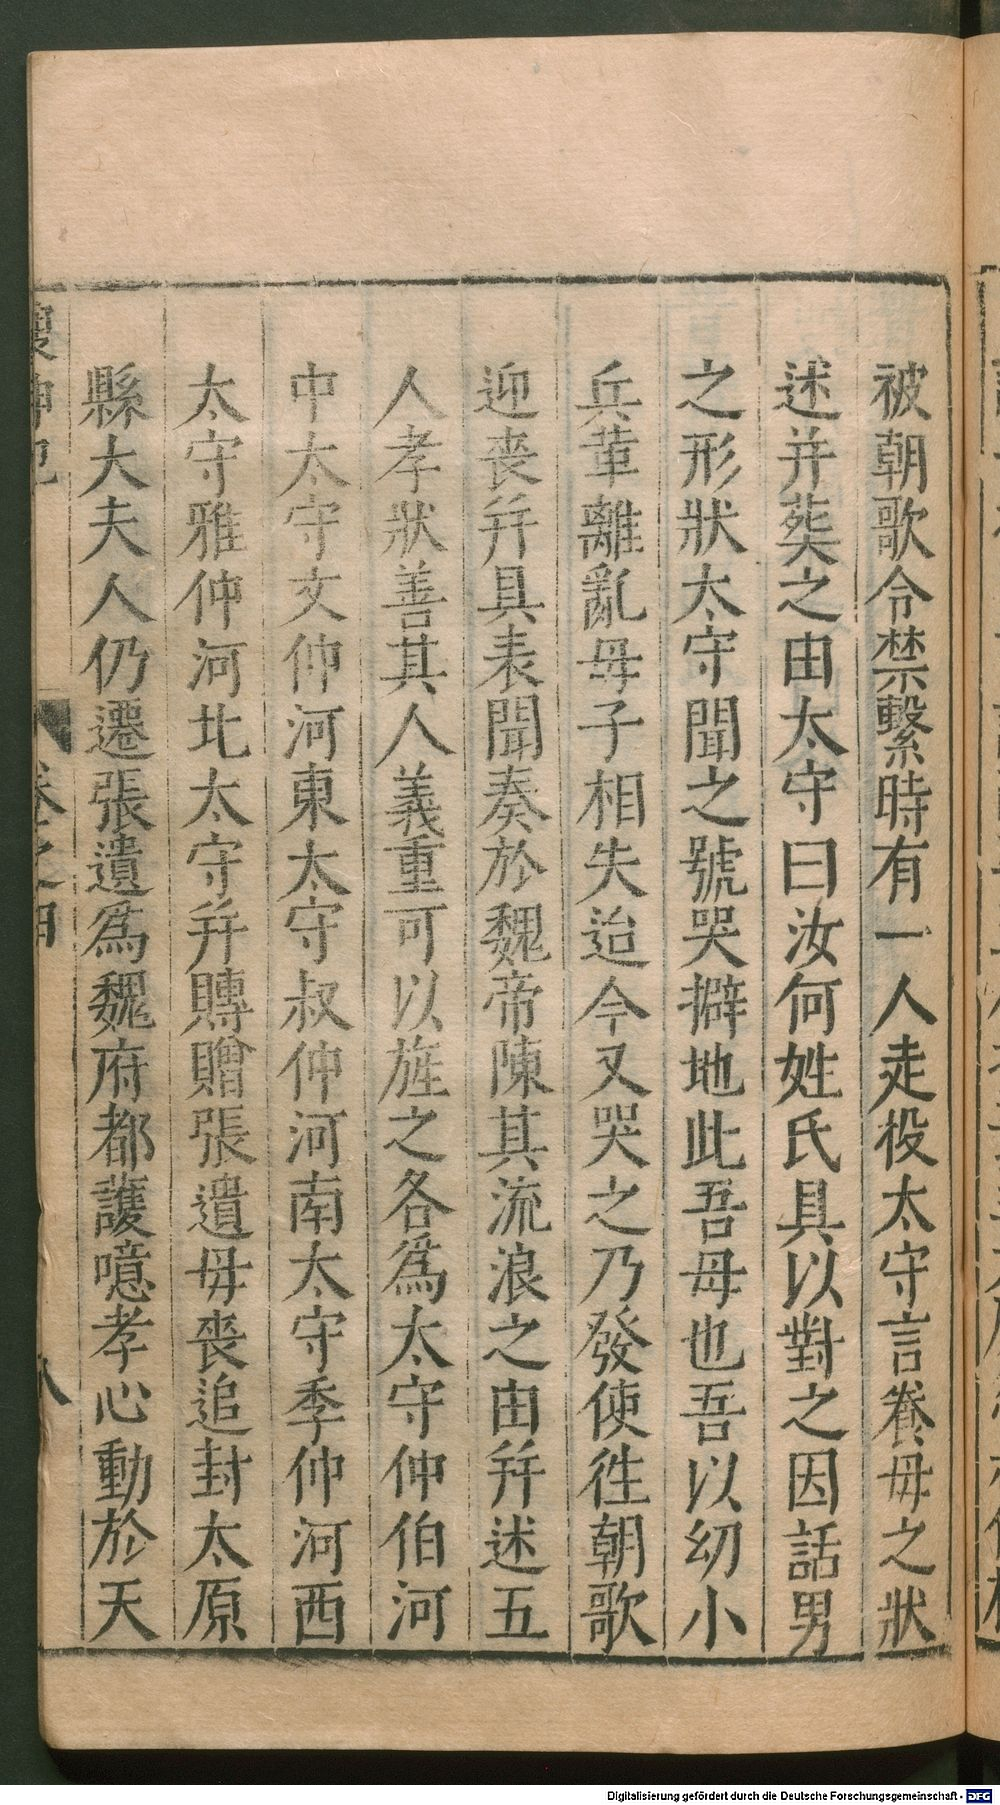 被朝歌令禁繫時有一人走投太守言養母之狀
述并葬之由太守曰汝何姓氏具以對之因話男
之形狀太守聞之號哭擗地此吾母也吾以幼小
兵革離亂母子相失迨今又哭之乃發使徃朝歌
迎喪幷具表聞奏於魏帝陳其流浪之由幷述五
人孝狀善其人義重可以旌之各爲太守仲伯河
中太守文仲河東太守叔仲河南太守季仲河西
太守雅仲河北太守幷賻贈張遺母喪追封太原
縣大夫人仍遷張遺爲魏府都護噫孝心動於天
卷之四
八
Digitalisierung gefördert durch die Deutsche Forschungsgemeinschaft - DFG